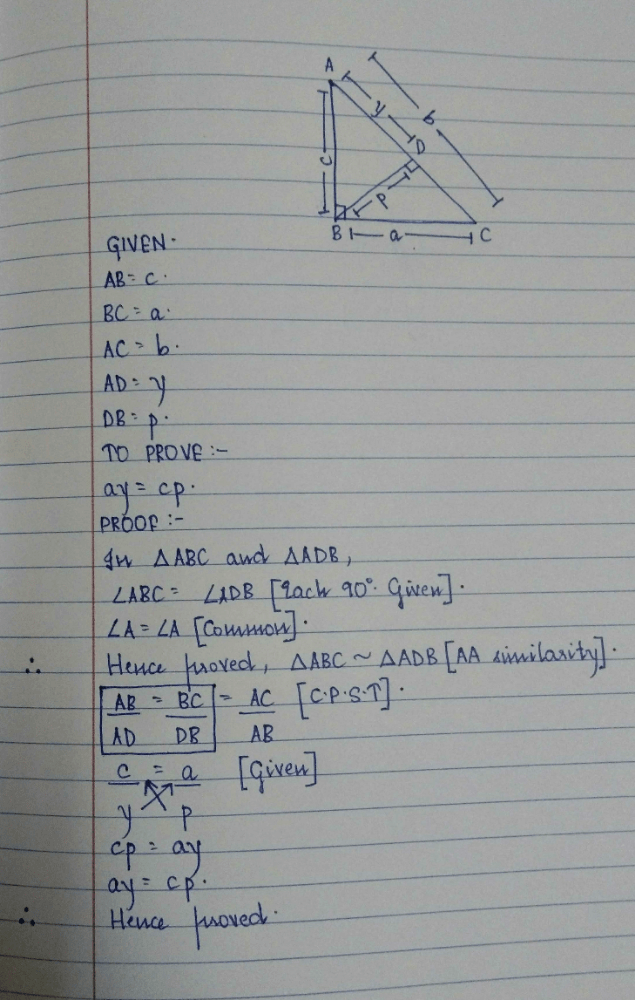 A
y
b
D
c
p
B a C
GIVEN.
AB = c.
BC = a.
AC = b.
AD = y
DB = p.
TO PROVE :-
ay = cp.
PROOF :-
In △ABC and △ADB,
∠ABC = ∠ADB [Each 90°. Given].
∠A = ∠A [Common].
∴ Hence proved, △ABC ~ △ADB [AA similarity].
AB = BC = AC [C.P.S.T].
AD DB AB
c = a [Given]
y p
cp = ay
ay = cp.
∴ Hence proved.